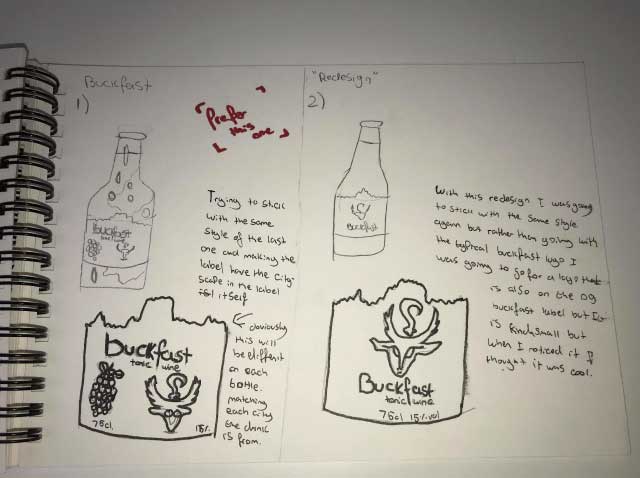 Buckfast
1)
Prefer
this
one
Buckfast
Trying to stick
with the same
style of the last
one and making the
label have the city-
scape in the label
itself
buckfast
tonic wine
75cl.
15%
obviously
this will
be different
on each
bottle.
matching
each city
the drink
is from.
"Redesign"
2)
Buckfast
With this redesign I was going
to stick with the same style
again but rather than going with
the typical buckfast logo I
was going to go for a logo that
is also on the OG
buckfast label but It
is kinda small but
when I noticed it I
thought it was cool.
S
Buckfast
tonic wine
75cl 15%vol